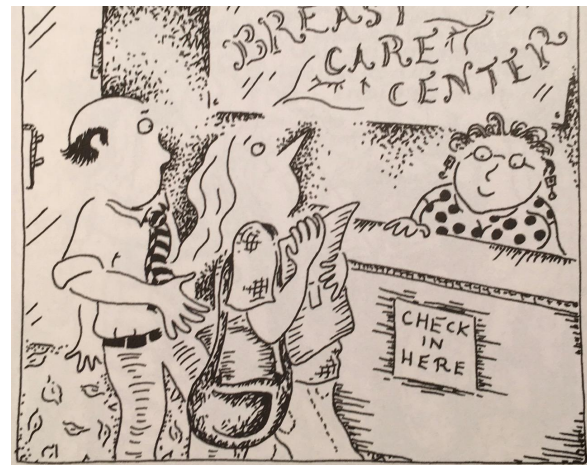 BREAST
CARE
CENTER
CHECK
IN
HERE